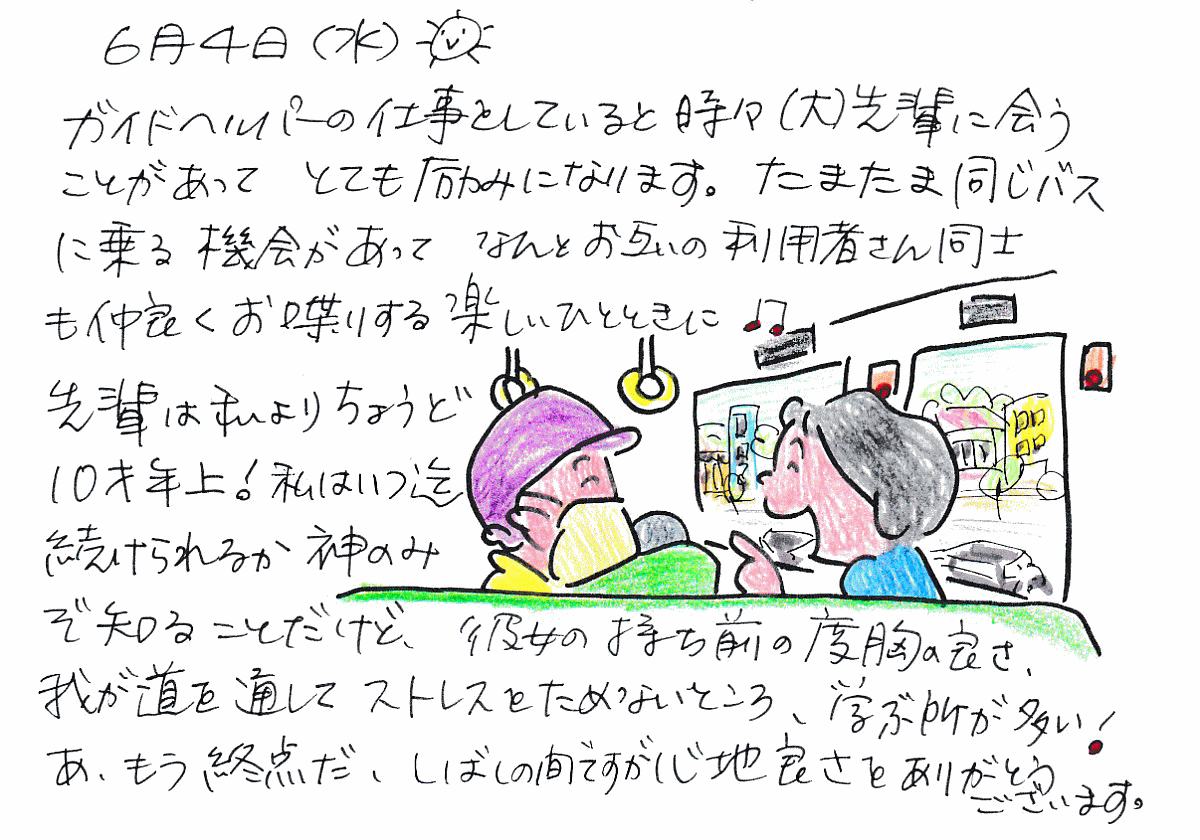 6月4日（水）
ガイドヘルパーの仕事をしていると時々（大）先輩に会う
ことがあって とても励みになります。たまたま同じバス
に乗る機会があって なんとお互いの利用者さん同士
も仲良くお喋りする楽しいひとときに
先輩は私よりちょうど
10才年上！私はいつ迄
続けられるか神のみ
ぞ知ることだけど、彼女の持ち前の度胸の良さ、
我が道を通してストレスをためないところ、学ぶ所が多い！
あ、もう終点だ、しばしの間ですが心地良さをありがとう
ございます。